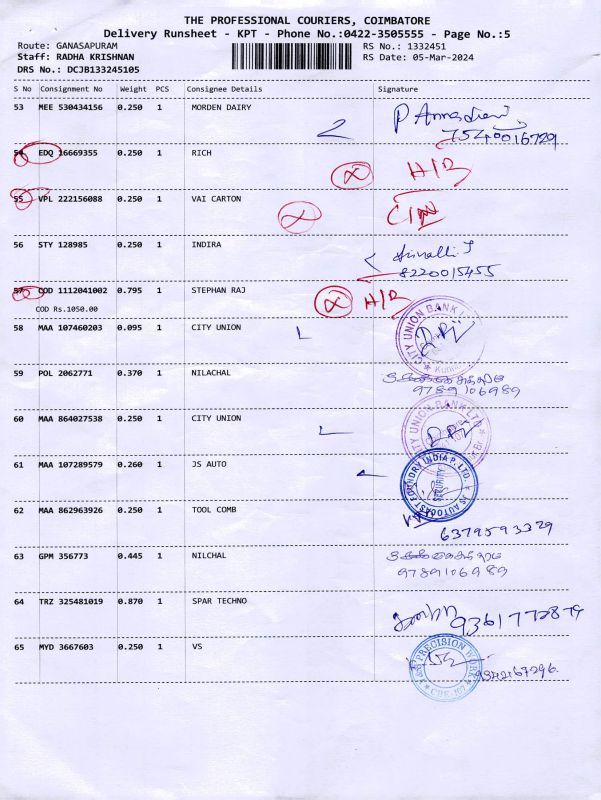 THE PROFESSIONAL COURIERS, COIMBATORE
Delivery Runsheet - KPT - Phone No.:0422-3505555 - Page No.:5
Route: GANASAPURAM RS No.: 1332451
Staff: RADHA KRISHNAN RS Date: 05-Mar-2024
DRS No.: DCJB133245105
S No Consignment No Weight PCS Consignee Details Signature
53 MEE 530434156 0.250 1 MORDEN DAIRY
7540016729
54 EDQ 16669355 0.250 1 RICH
55 VPL 222156088 0.250 1 VAI CARTON
56 STY 128985 0.250 1 INDIRA
8220015455
57 COD 1112041002 0.795 1 STEPHAN RAJ
COD Rs.1050.00
58 MAA 107460203 0.095 1 CITY UNION
CITY UNION BANK
59 POL 2062771 0.370 1 NILACHAL
9789106989
60 MAA 864027538 0.250 1 CITY UNION
CITY UNION BANK LTD
61 MAA 107289579 0.260 1 JS AUTO
JS AUTOCAST FOUNDRY INDIA P. LTD.
SECURITY
62 MAA 862963926 0.250 1 TOOL COMB
6379593329
63 GPM 356773 0.445 1 NILCHAL
9789106989
64 TRZ 325481019 0.870 1 SPAR TECHNO
65 MYD 3667603 0.250 1 VS
PRECISION WORK